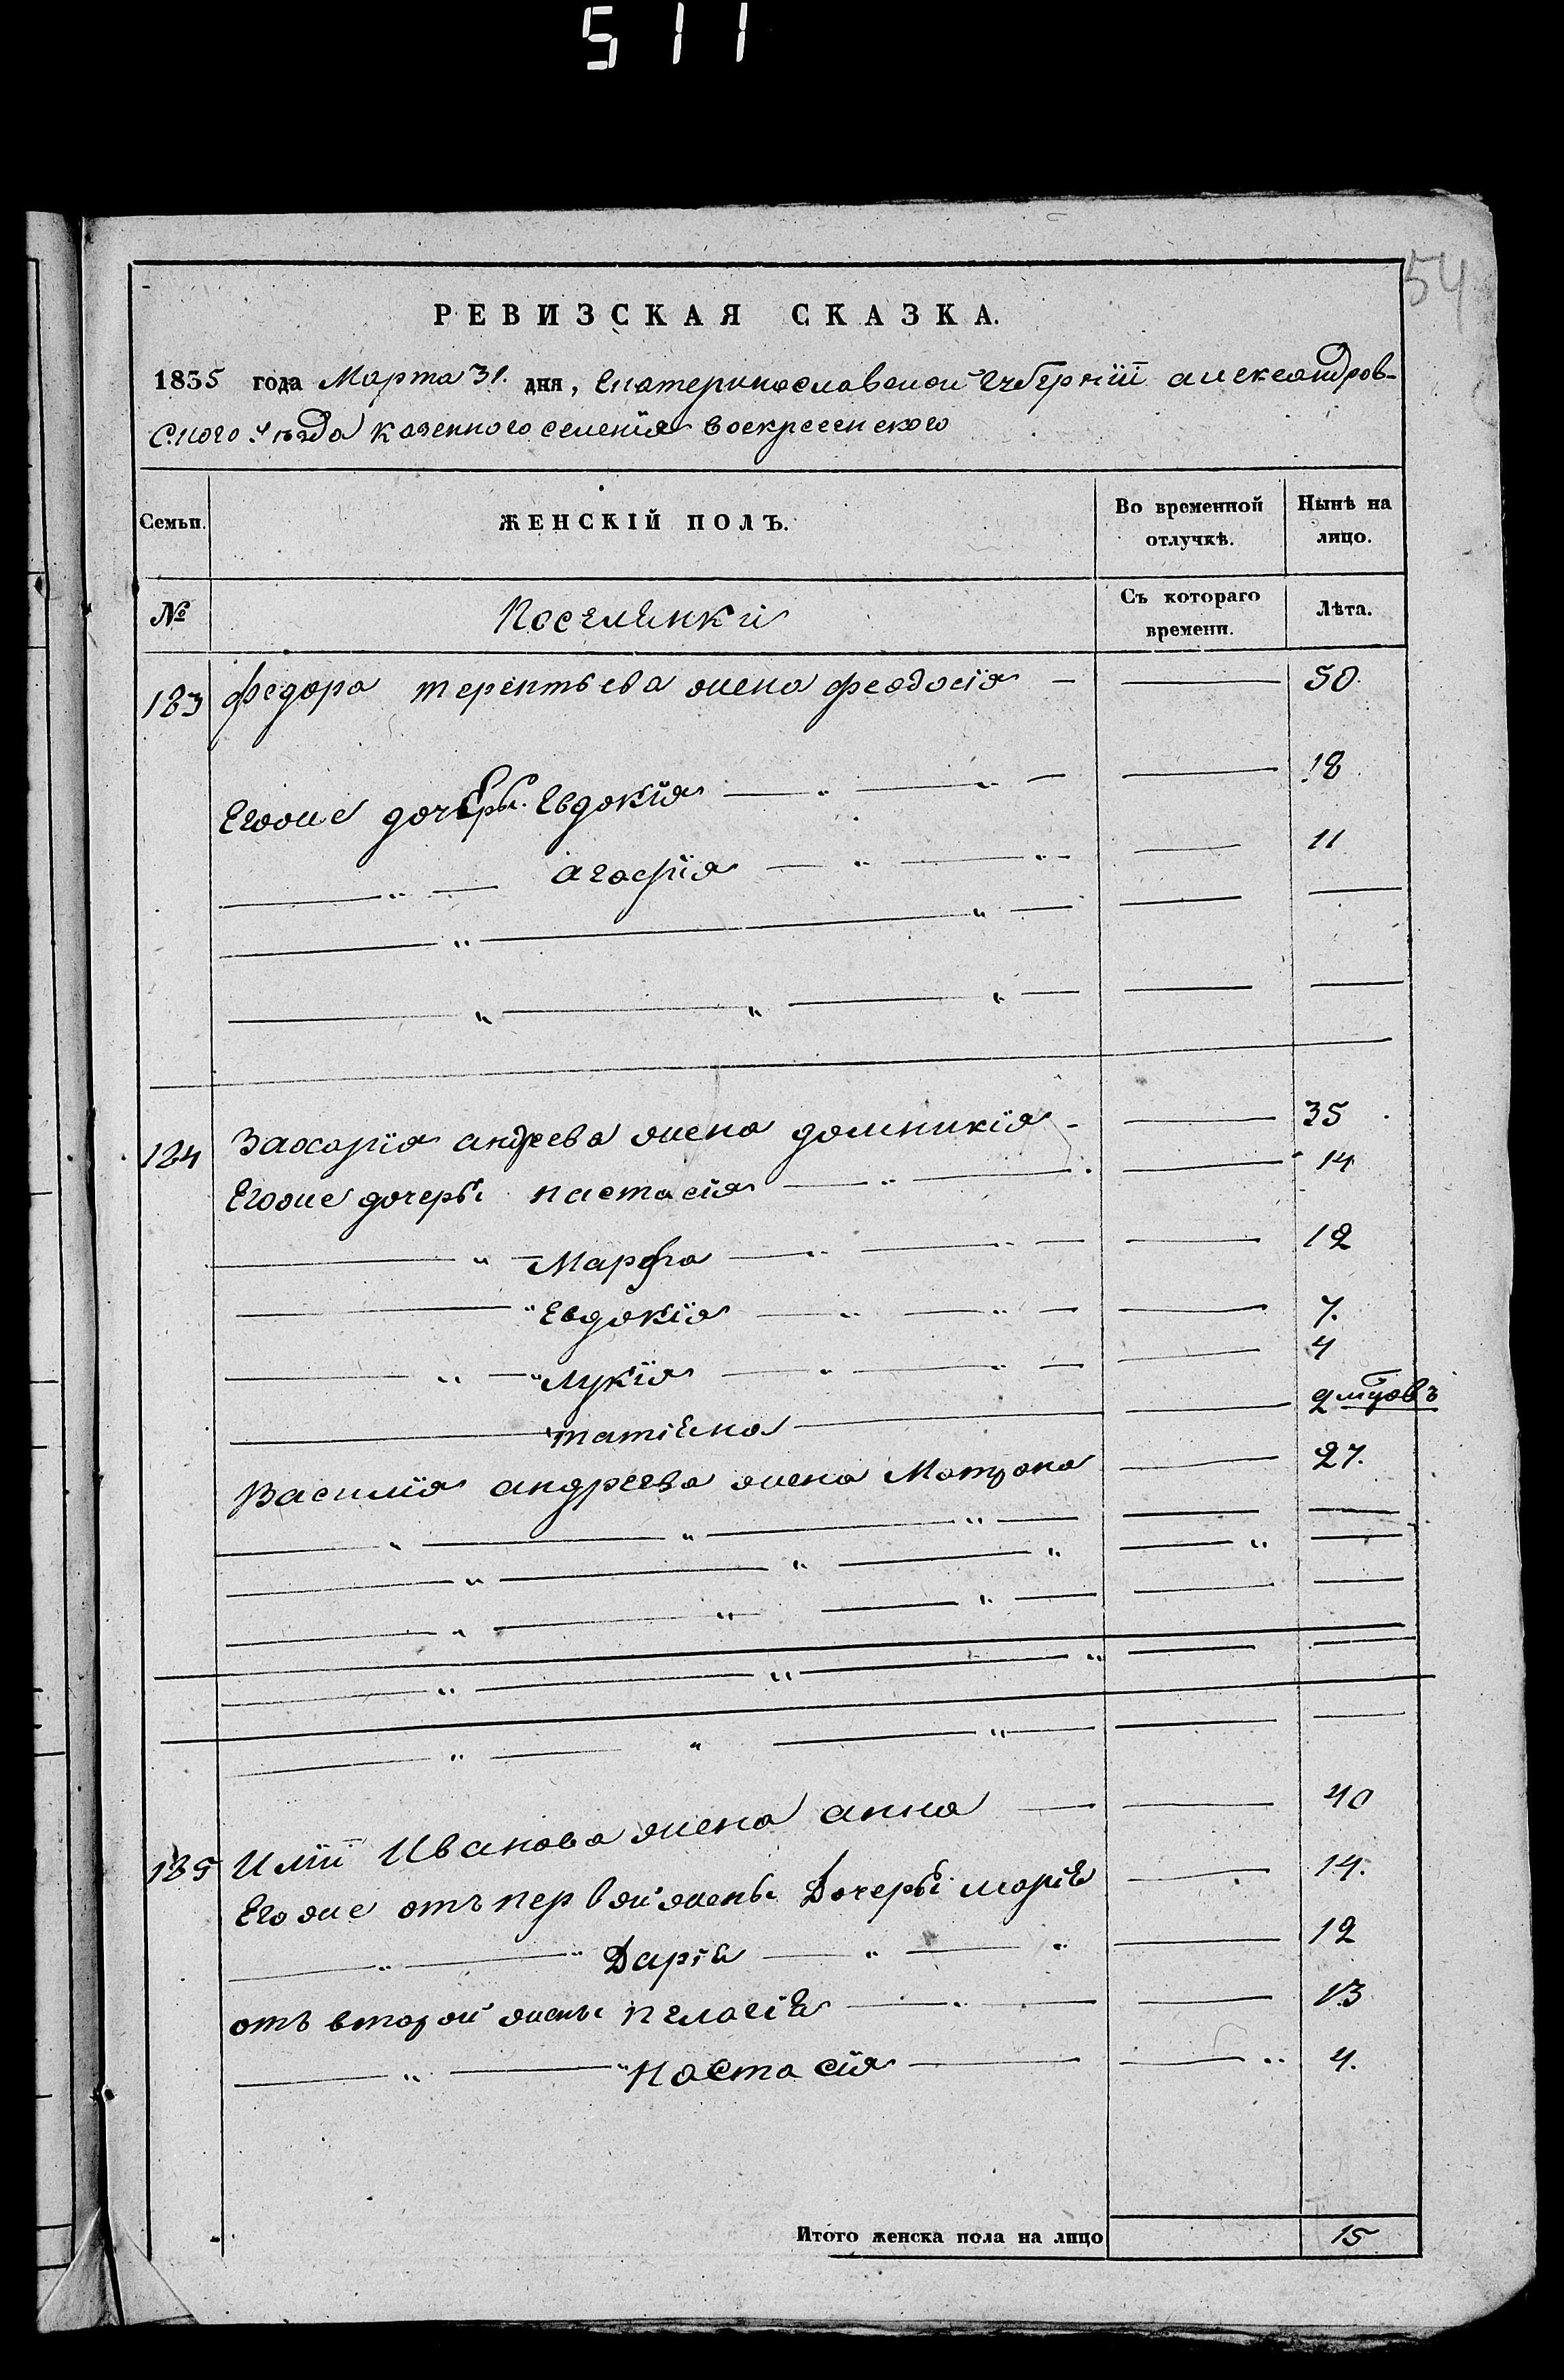 511
54
РЕВИЗСКАЯ СКАЗКА.
1835 года Марта 31. дня, Екатеринославской Губерніи александров-
скаго уѣзда казенного селенія воскресенского
Семьи. ЖЕНСКІЙ ПОЛЪ. Во временной отлучкѣ. Нынѣ на лицо.
№ Поселенки Съ котораго времени. Лѣта.
183 федора терентьева жена феодосія — 50.
Егоже дочеры Евдокія — 18
агафія — 11
184 Захарія андреева жена домникія — 35
Егоже дочеры настасія — 14
Марфа — 12
Евдокія — 7.
Лукія — 4
татіяна — 2 мцовъ
Василія андреева жена Матрона — 27.
185 Иліи Иванова жена анна — 40
Егоже отъ первой жены Дочеры марія — 14.
Дарія — 12
отъ второй жены пелагія — 13
настасія — 4.
Итого женска пола на лицо 15